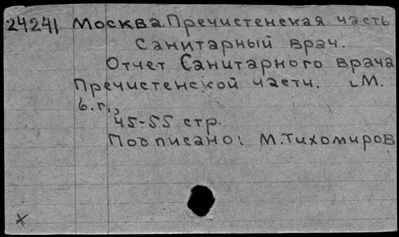 24241 Москва. Пречистенская часть
Санитарный врач.
Отчет Санитарного врача
Пречистенской части. М.
б.г.,
45-55 стр.
Подписано: М. Тихомиров
x